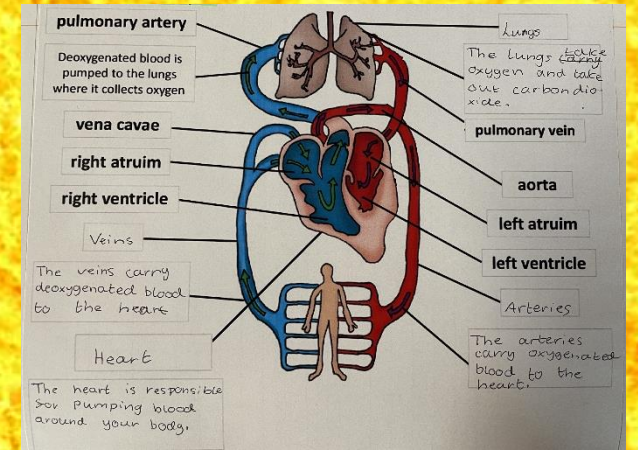 pulmonary artery
Deoxygenated blood is
pumped to the lungs
where it collects oxygen
vena cavae
right atruim
right ventricle
Veins
The veins carry
deoxygenated blood
to the heart
Heart
The heart is responsible
for pumping blood
around your body.
Lungs
The lungs take
carry
oxygen and take
out carbondio-
xide.
pulmonary vein
aorta
left atruim
left ventricle
Arteries
The arteries
carry oxygenated
blood to the
heart.